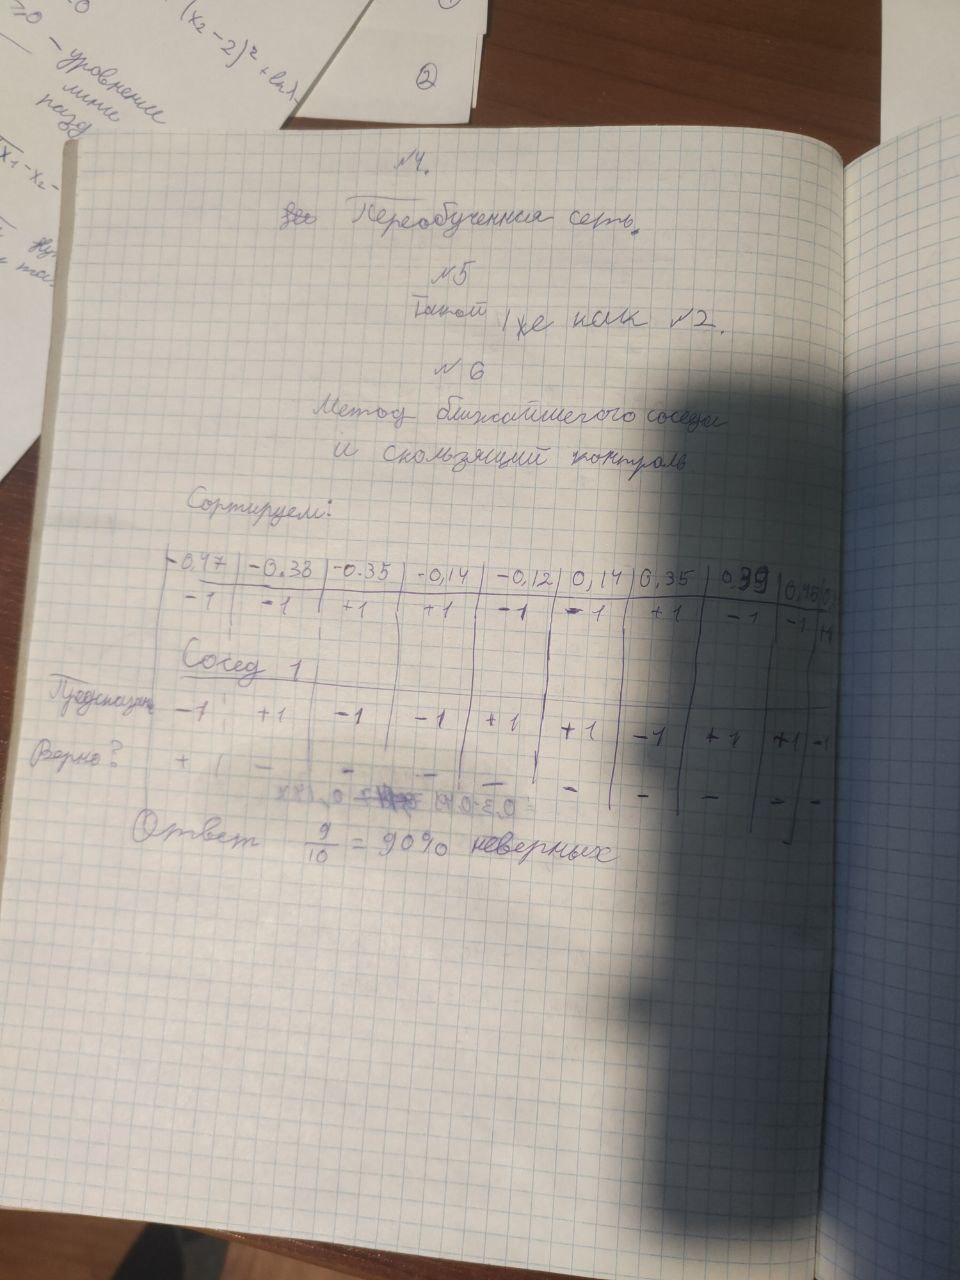 (x₂ - 2)² + ln λ
≥0 - уравнение
линии
разд
x₁ - x₂ -
②
№4.
Переобученная сеть.
№5
Такой же как №2.
№6
Метод ближайшего соседа
и скользящий контроль
Сортируем:
-0,47 | -0.38 | -0.35 | -0,14 | -0,12 | 0,14 | 0,35 | 0,39 | 0,45
-1 | -1 | +1 | +1 | -1 | -1 | +1 | -1 | -1 | +1
Сосед 1
Предсказан -1 | +1 | -1 | -1 | +1 | +1 | -1 | +1 | +1 | -1
Верно? + | - | - | - | - | - | - | - | - | -
Ответ 9/10 = 90% неверных